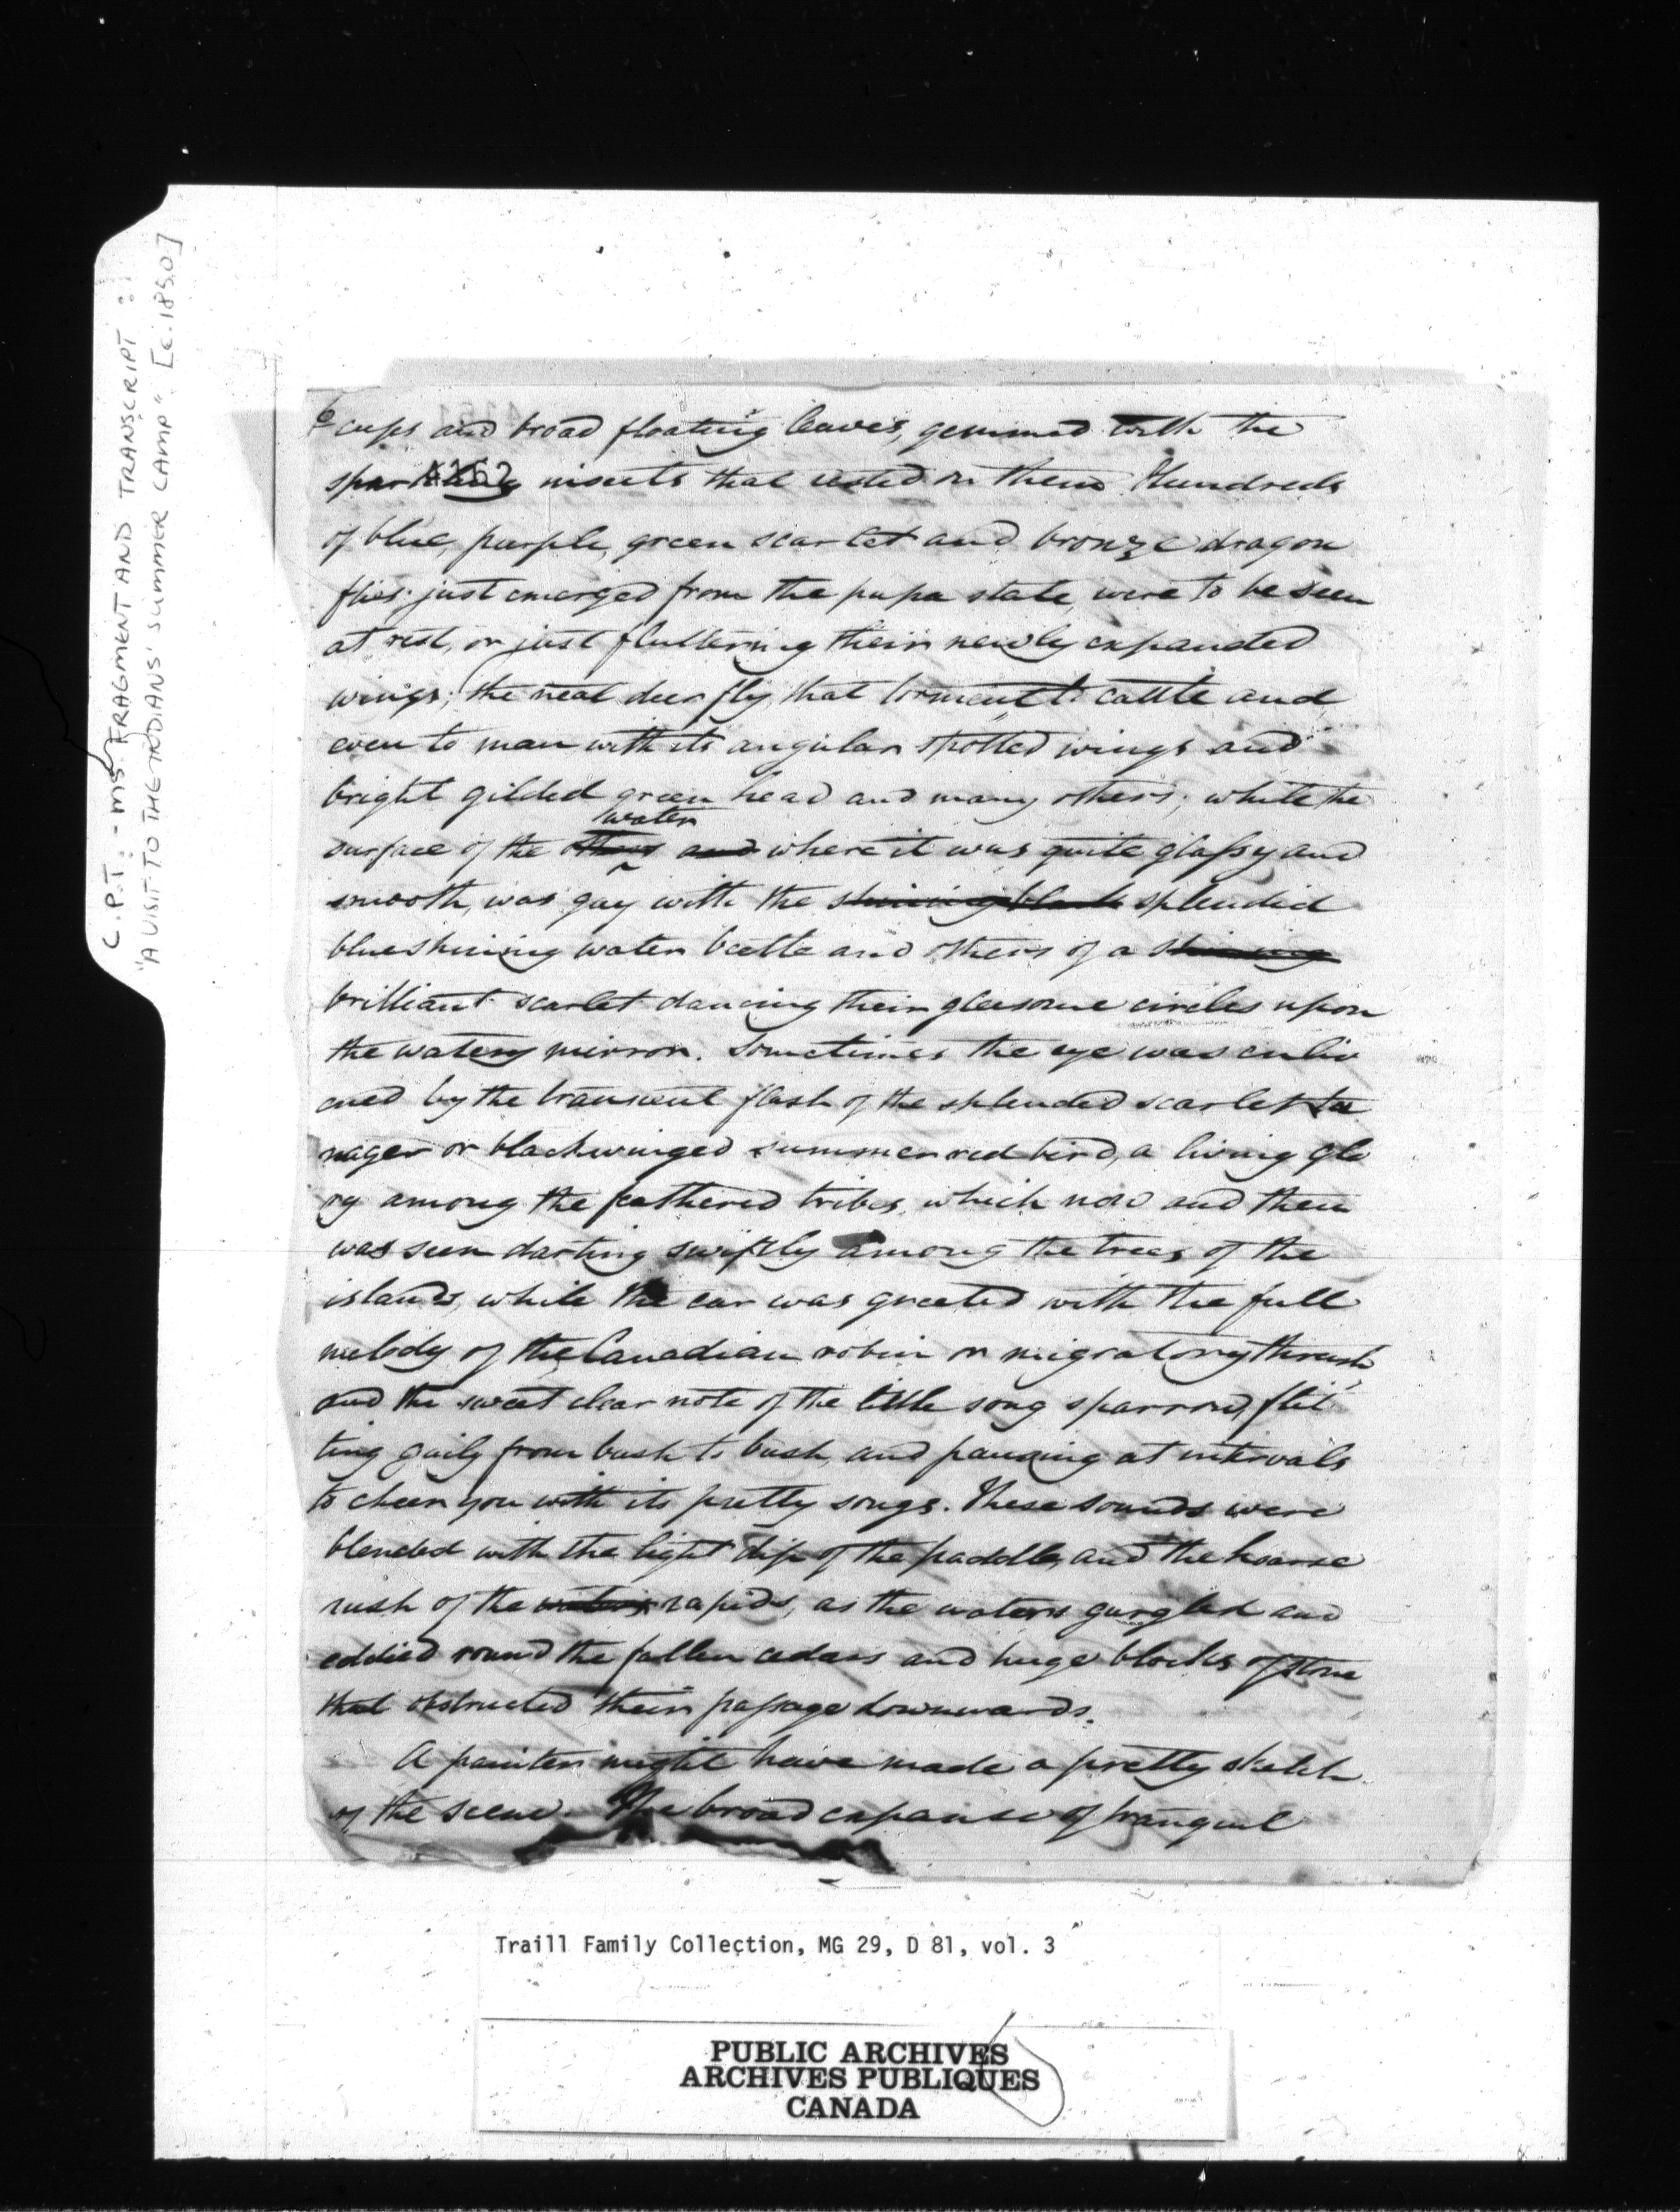 C.P.T. - MS. FRAGMENT AND TRANSCRIPT:
"A VISIT TO THE INDIANS' SUMMER CAMP" [c.1850]
6
cups and broad floating leaves, gemmed with the
sparkling insects that rested on them. Hundreds
4162
of blue, purple, green scarlet and bronze dragon
flies just emerged from the pupa state, were to be seen
at rest, or just fluttering their newly expanded
wings; the neat deer fly, that torment to cattle and
even to man with its angular spotted wings and
bright gilded green head and many others; while the
water
surface of the and where it was quite glassy and
smooth, was gay with the shining black splendid
blue shining water beetle and others of a shining
brilliant scarlet dancing their gleesome circles upon
the watery mirror. Sometimes the eye was enliv
ened by the transient flash of the splended scarlet ta
nager or blackwinged summer red bird, a living glo
ry among the feathered tribes, which now and then
was seen darting swiftly among the trees of the
islands, while the ear was greeted with the full
melody of the Canadian robin or migratory thrush
and the sweet clear note of the little song sparrow, flit
ting gaily from bush to bush, and pausing at intervals
to cheer you with its pretty songs. These sounds were
blended with the light dip of the paddle, and the hoarse
rush of the waters rapids, as the waters gurgled and
eddied round the fallen cedars and huge blocks of stone
that obstructed their passage downwards.
A painter might have made a pretty sketch
of the scene. The broad expanse of tranquil
Traill Family Collection, MG 29, D 81, vol. 3
PUBLIC ARCHIVES
ARCHIVES PUBLIQUES
CANADA